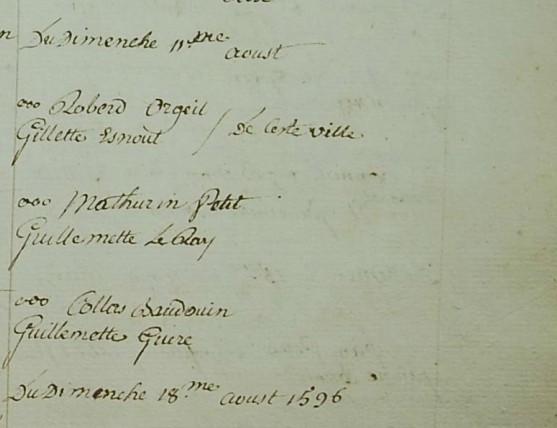 Du Dimenche 11me
aoust
ooo Roberd Orgeil
Gillette Esnout / de Ceste ville
ooo Mathurin Petit
Guillemette Le Ray
ooo Collas Baudouin
Guillemette Guere
Du Dimenche 18me aoust 1596